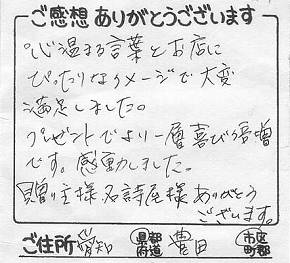 ご感想 ありがとうございます
心温まる言葉とお店に
ぴったりなイメージで大変
満足しました。
プレゼントでより一層喜び倍増
です。感動しました。
贈り主様名詩屋様ありがとう
ございます。
ご住所 愛知 都道府県 豊田 市区町郡